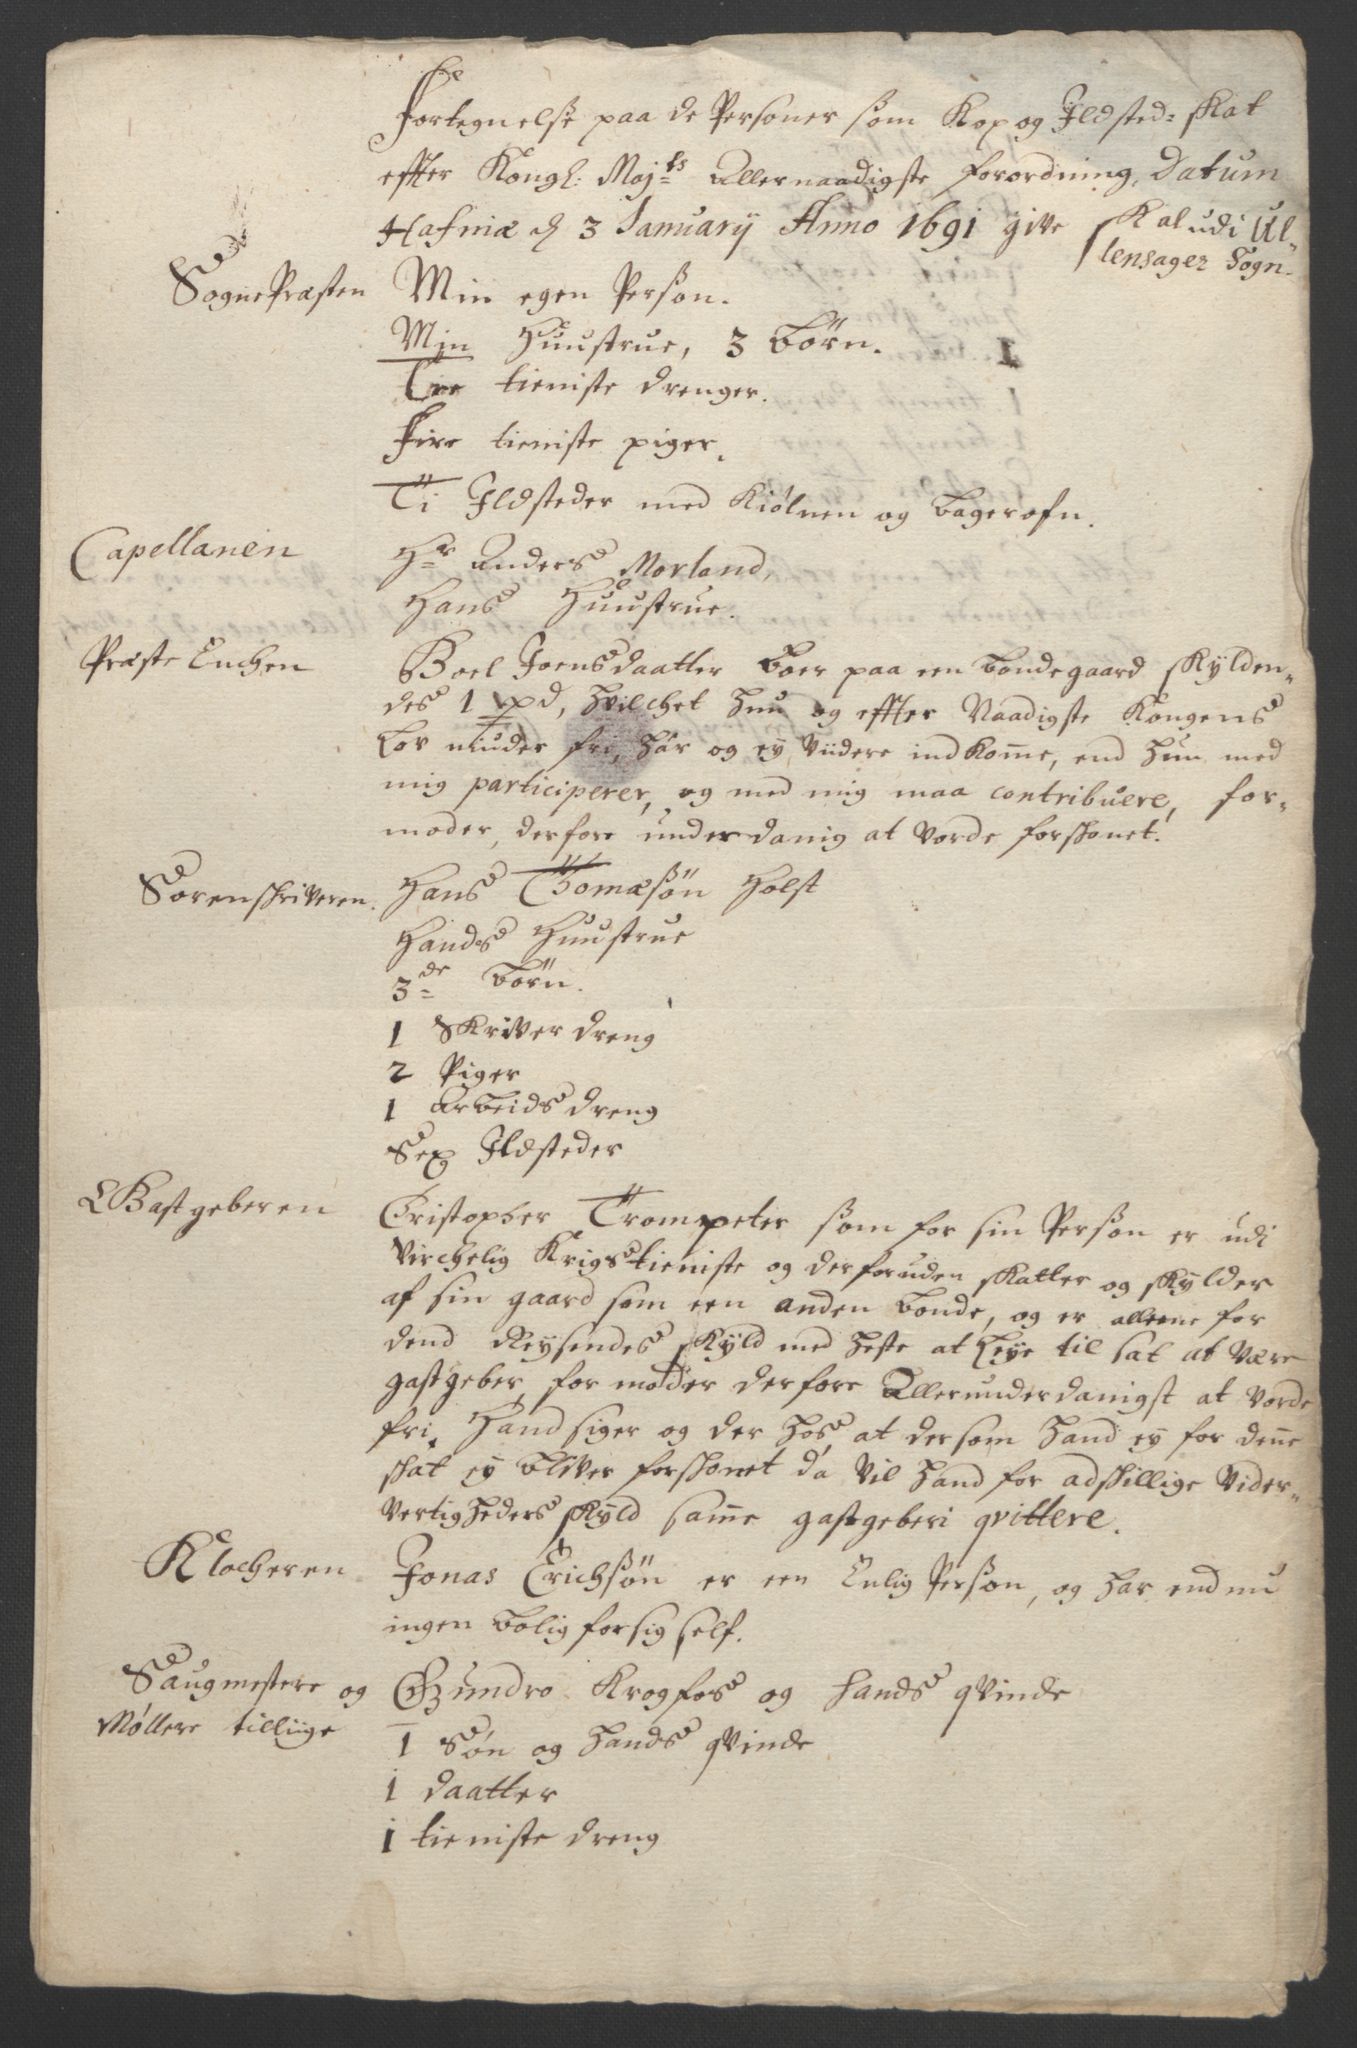 Fortegnelse paa de Personer som Kop og Ildsted= skat
effter Kongl: Maj:ts Allernaadigste forordning, Datum
Hafniæ d 3 Januarij Anno 1691 give skal udi Ul-
lensager Sogn.
SognePræsten Min egen Person.
Min Huustrue, 3 børn. 1
tieniste drenger.
Fire tieniste piger.
Ti Ildsteder med Kiølnen og bagerofn.
Capellanen Hr Anders Morland,
Hans Huustrue.
Præste Enchen Boel Joensdaatter boer paa een bondegaard skylden-
des 1 pd, hvilchet hun og effter Naadigste Kongens
Lov niuder fri, hâr og ey viidere indkom̄e, end hun med
mig participerer, og med mig maa contribuere, for-
moder, derfore underdanig at vorde forskonet.
Sorenskriveren. Hans Thomæsøn Holst
Hands Huustrue
3de børn.
1 Skriver dreng
2 Piger
1 Arbeids dreng
Sex Ildsteder
Giastgeberen Christopher Trompeter som for sin Person er udi
virchelig Krigstieniste og derforuden skatter og skylder
af sin gaard som een anden bonde, og er alleene for
dend Reysendes skyld med heste at Leye til sat at være
gastgeber, formoder derfore Allerunderdanigst at vorde
fri. Hand siger og der hos at dersom hand ey for den̄e
skat ey bliver forskonet da vil hand for adskillige vider-
vertigheders skyld sam̄e gastgeberi qvittere.
Klocheren Jonas Erichsøn er een Enlig Person, og har end nu
ingen bolig for sig self.
Saugmestere og Gundro Krogfos og hands qvinde
Møllere tilliige 1 Søn og hands qvinde
1 daatter
1 tieniste dreng